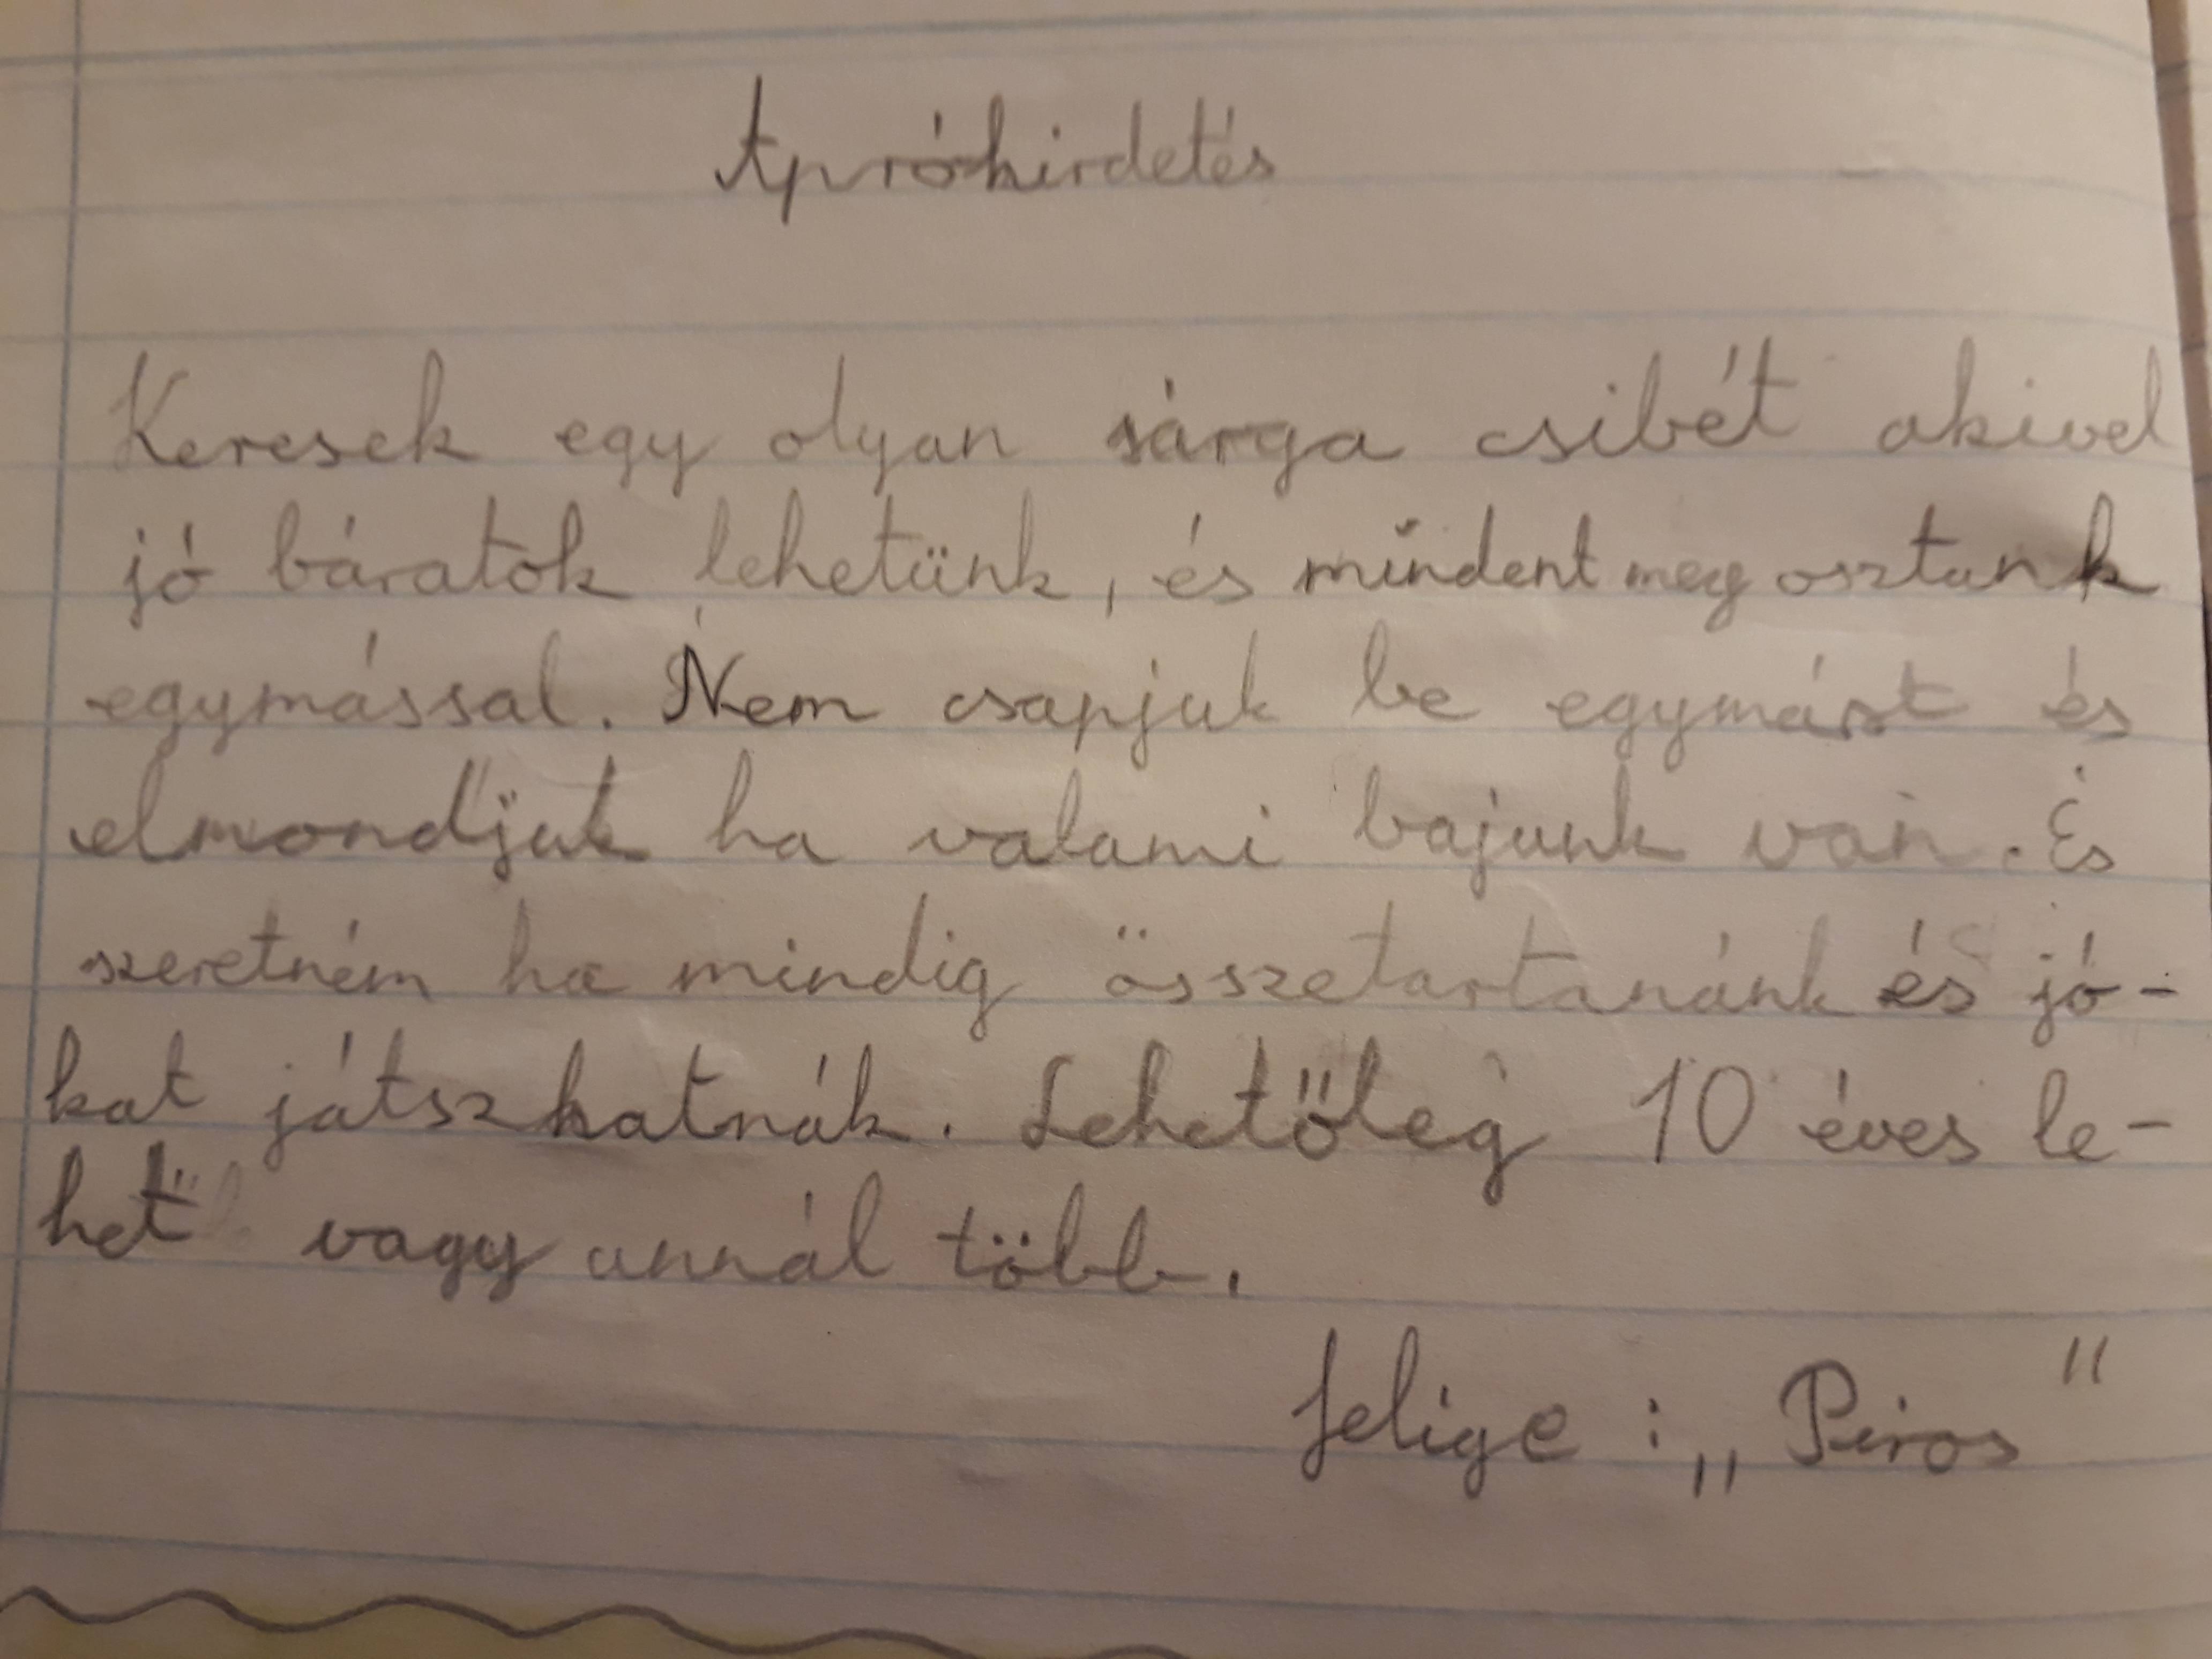 Apróhirdetés
Keresek egy olyan sárga csibét akivel
jó báratok lehetünk, és mindent meg osztunk
egymással. Nem csapjuk be egymást és
elmondjuk ha valami bajunk van. És
szeretném ha mindig összetartanánk és jó-
kat játszhatnák. Lehetőleg 10 éves le-
het vagy annál több.
Jelige : „Piros"